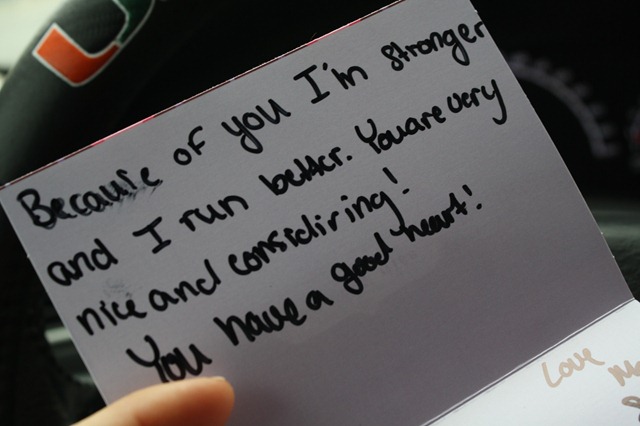 Because of you I'm stronger
and I run better. You are very
nice and considiring!
You have a good heart!
Love